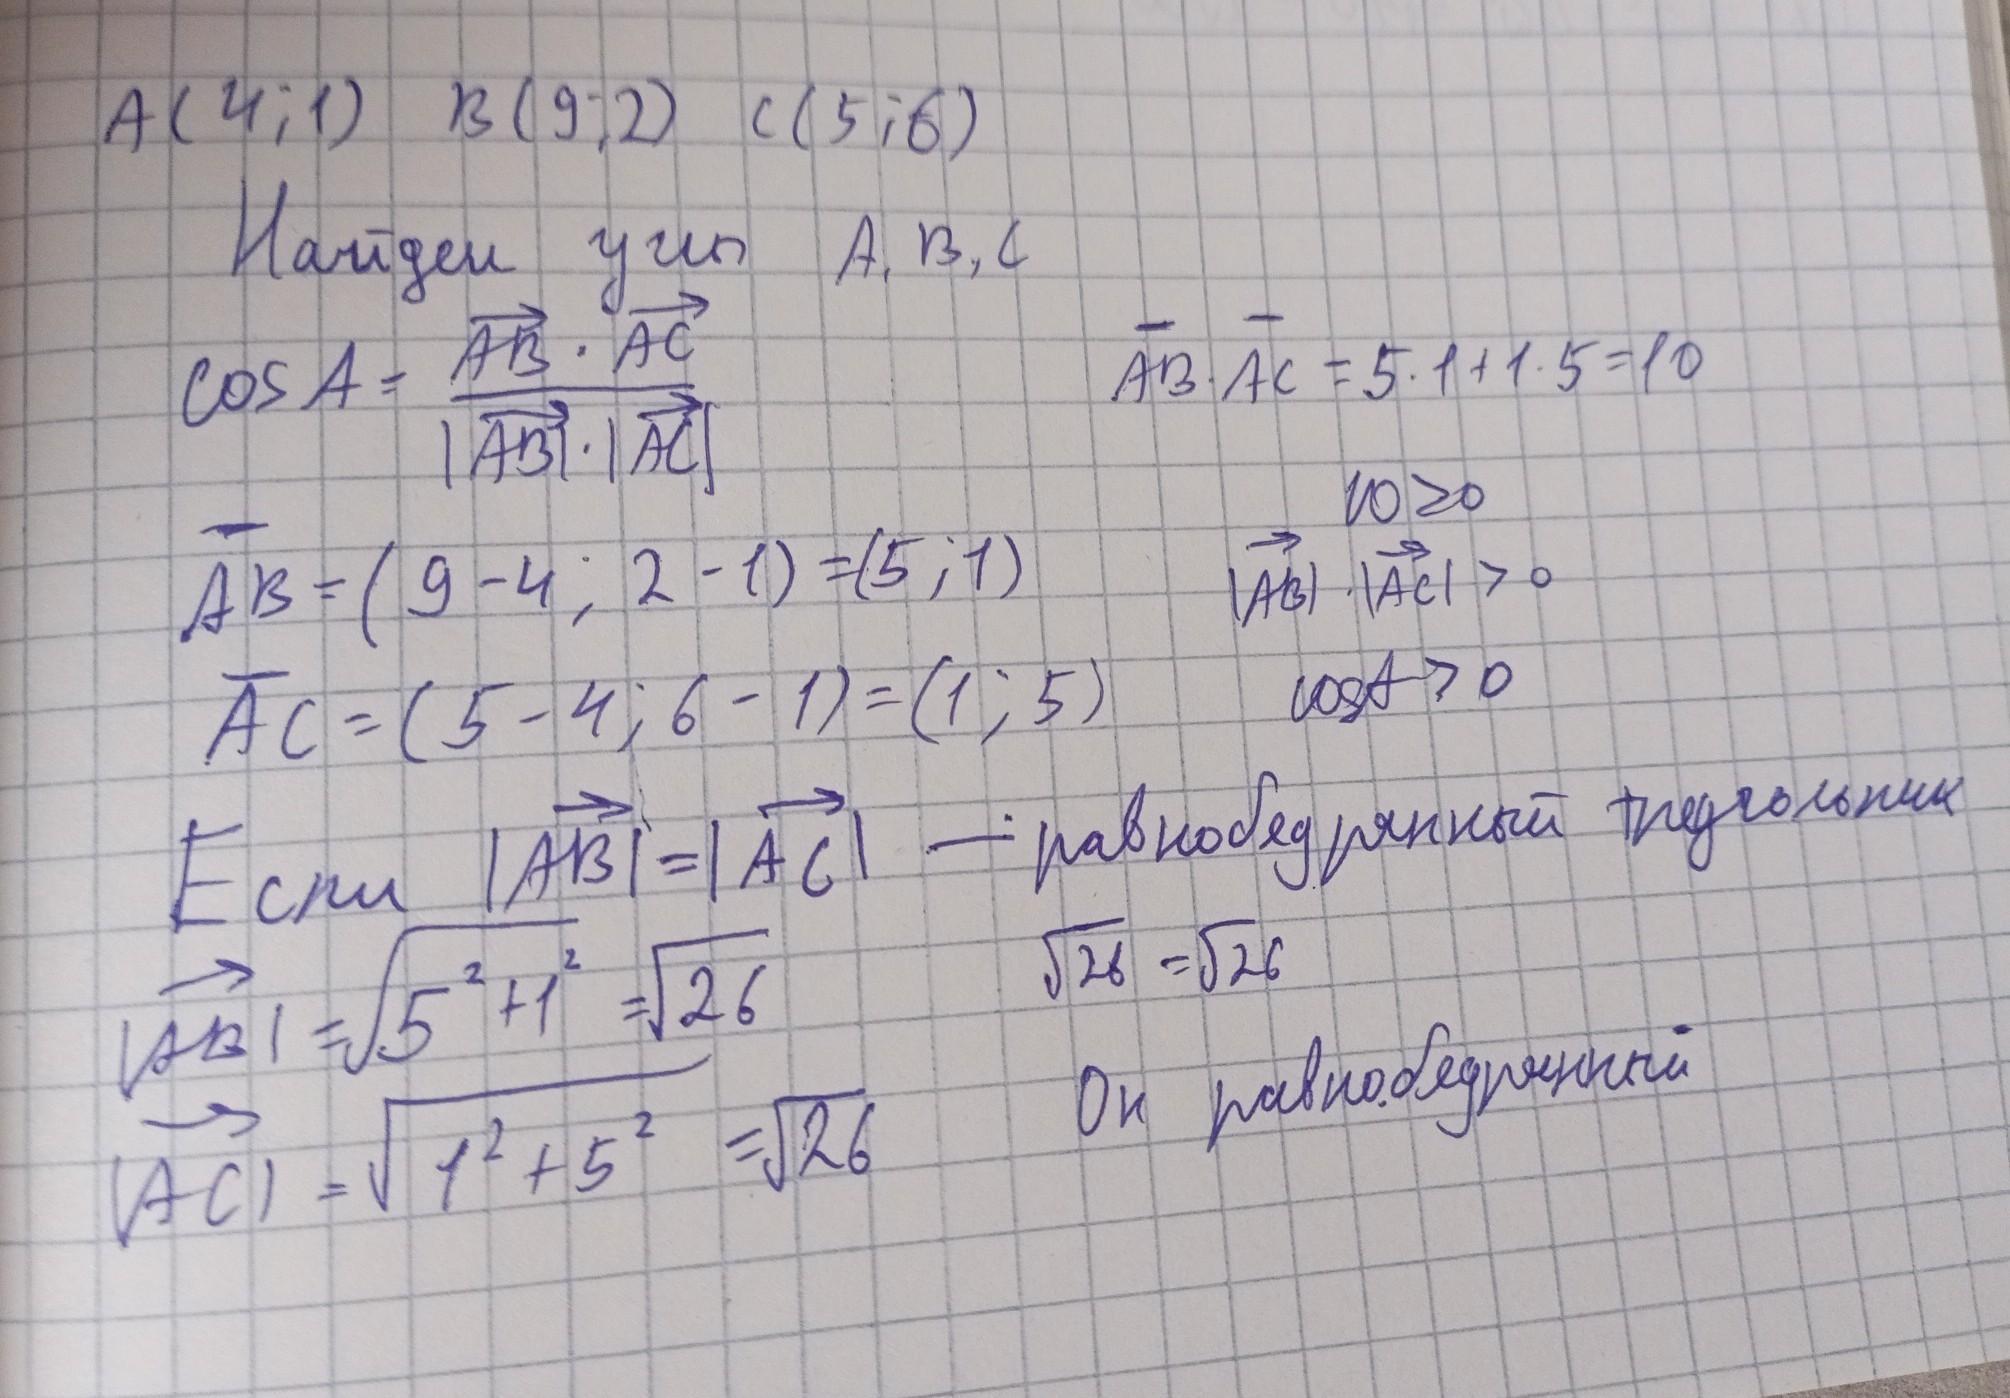 A(4;1) B(9;2) C(5;6)
Найдем углы A, B, C
cos A = \frac{\overrightarrow{AB} · \overrightarrow{AC}}{|\overrightarrow{AB}| · |\overrightarrow{AC}|}
\overline{AB} · \overline{AC} = 5·1+1·5=10
10≥0
\overline{AB} = (9-4; 2-1) = (5;1)
|\overrightarrow{AB}| · |\overrightarrow{AC}| > 0
\overline{AC} = (5-4; 6-1) = (1;5)
cosA > 0
Если |\overrightarrow{AB}| = |\overrightarrow{AC}| — равнобедрянный треугольник
|\overrightarrow{AB}| = \sqrt{5²+1²} = \sqrt{26}
\sqrt{26} = \sqrt{26}
|\overrightarrow{AC}| = \sqrt{1²+5²} = \sqrt{26}
Он равнобедрянный